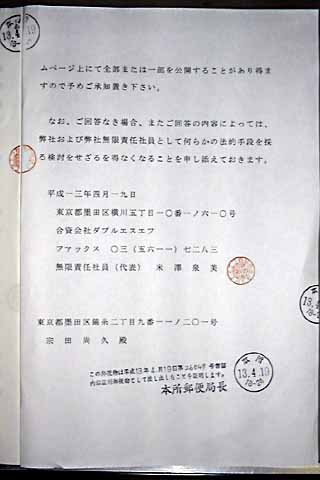 13.4.19
ムページ上にて全部または一部を公開することがあり得ま
すので予めご承知置き下さい。
なお、ご回答なき場合、またご回答の内容によっては、
弊社および弊社無限責任社員として何らかの法的手段を採
る検討をせざるを得なくなることを申し添えておきます。
平成一三年四月一九日
東京都墨田区横川五丁目一〇番一ノ六一〇号
合資会社ダブルエスエフ
ファックス 〇三(五六一一)七二八三
無限責任社員(代表) 米澤泉美
東京都墨田区錦糸二丁目九番一一ノ二〇一号
宗田尚久殿
この郵便物は平成13年4月19日第
号書留
内容証明郵便物として差し出したことを証明します。
本所郵便局長
本所
13.4.19
18-24